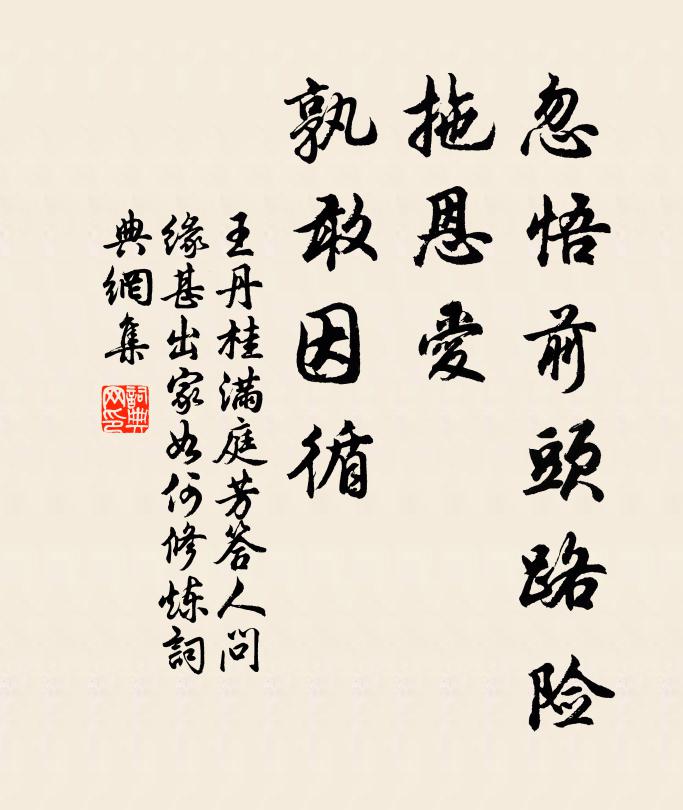 忽悟前頭路险
拖恩愛
孰敢因循
王丹桂满庭芳答人问
缘甚出家如何修炼詞
典網集
詞典网印